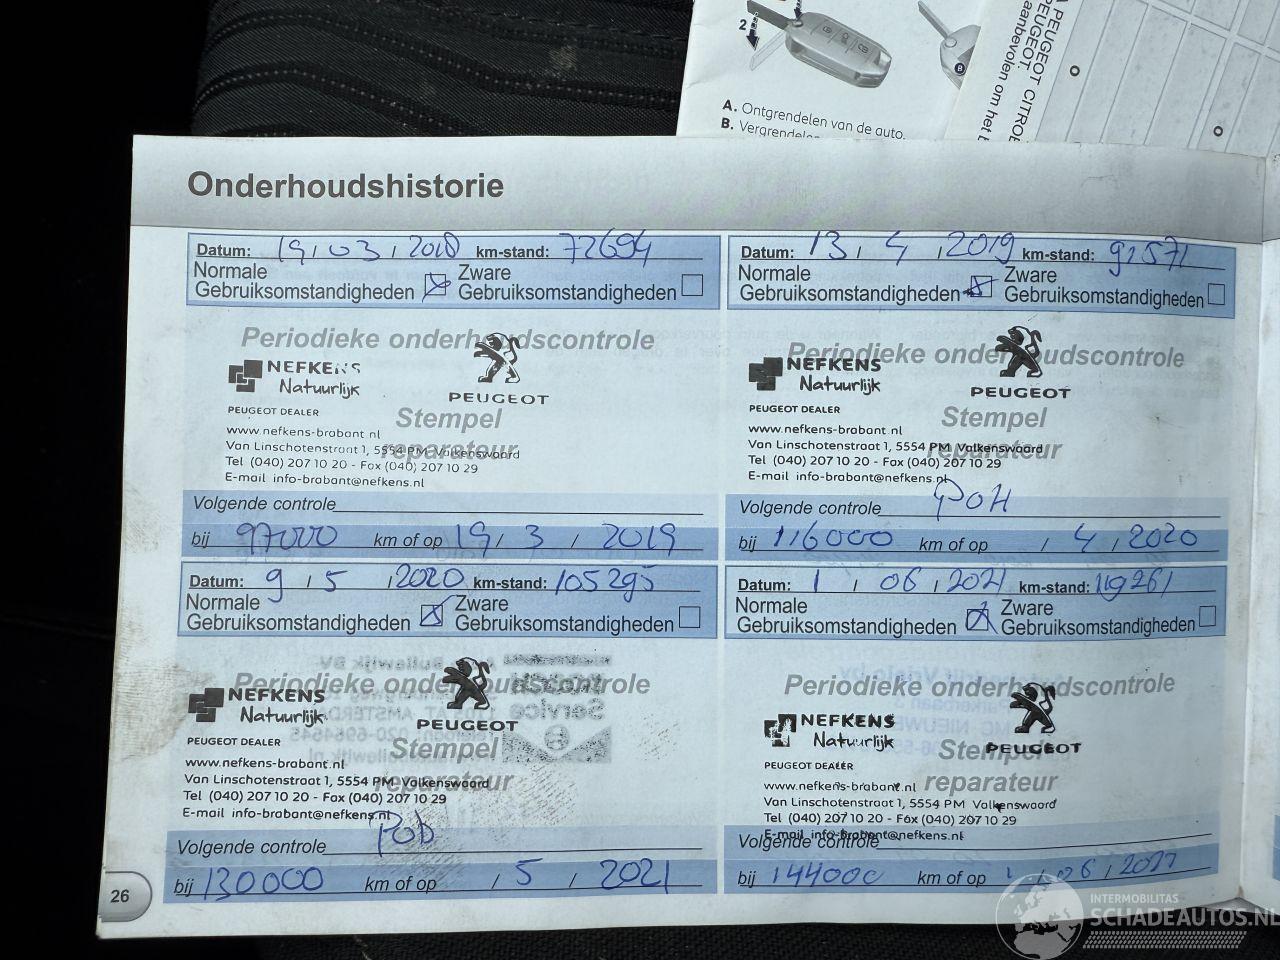 2
A. Ontgrendelen van de auto.
B. Vergrendelen
B
PEUGEOT CITROË
PEUGEOT.
aanbevolen om het
Onderhoudshistorie
Datum: 19 / 03 / 2018 km-stand: 72694
Normale Gebruiksomstandigheden Zware Gebruiksomstandigheden
Periodieke onderhoudscontrole
NEFKENS
Natuurlijk
PEUGEOT
PEUGEOT DEALER
Stempel reparateur
www.nefkens-brabant.nl
Van Linschotenstraat 1, 5554 PM Valkenswaard
Tel (040) 207 10 20 - Fax (040) 207 10 29
E-mail info-brabant@nefkens.nl
Volgende controle
bij 97000 km of op 19 / 3 / 2019
Datum: 13 / 4 / 2019 km-stand: 91571
Normale Gebruiksomstandigheden Zware Gebruiksomstandigheden
Periodieke onderhoudscontrole
NEFKENS
Natuurlijk
PEUGEOT
PEUGEOT DEALER
Stempel reparateur
www.nefkens-brabant.nl
Van Linschotenstraat 1, 5554 PM Valkenswaard
Tel (040) 207 10 20 - Fax (040) 207 10 29
E-mail info-brabant@nefkens.nl
Volgende controle POH
bij 116000 km of op / 4 / 2020
Datum: 9 / 5 / 2020 km-stand: 105295
Normale Gebruiksomstandigheden Zware Gebruiksomstandigheden
Periodieke onderhoudscontrole
NEFKENS
Natuurlijk
PEUGEOT
PEUGEOT DEALER
Stempel reparateur
www.nefkens-brabant.nl
Van Linschotenstraat 1, 5554 PM Valkenswaard
Tel (040) 207 10 20 - Fax (040) 207 10 29
E-mail info-brabant@nefkens.nl
Volgende controle
bij 130000 km of op / 5 / 2021
Datum: 1 / 06 / 2021 km-stand: 119261
Normale Gebruiksomstandigheden Zware Gebruiksomstandigheden
Periodieke onderhoudscontrole
NEFKENS
Natuurlijk
PEUGEOT
PEUGEOT DEALER
Stempel reparateur
www.nefkens-brabant.nl
Van Linschotenstraat 1, 5554 PM Valkenswaard
Tel (040) 207 10 20 - Fax (040) 207 10 29
E-mail info-brabant@nefkens.nl
Volgende controle
bij 144000 km of op 1 / 06 / 2022
26
INTERMOBILITAS
SCHADEAUTOS.NL